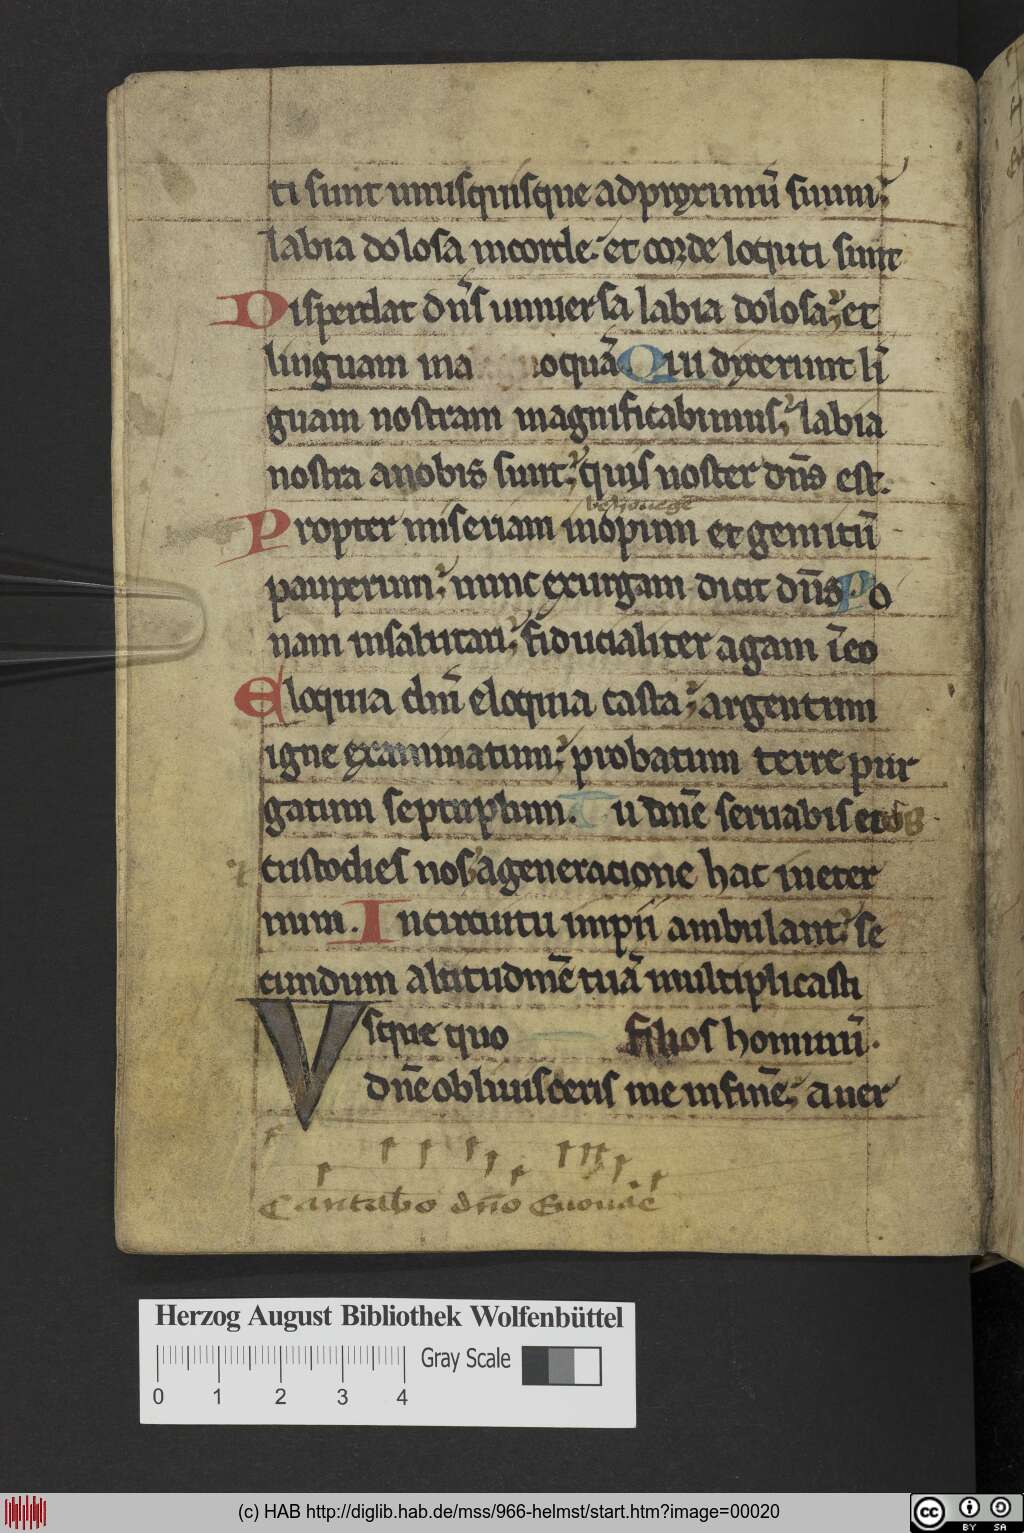 ti sunt unusquisque ad proximū suum;
labia dolosa in corde. et corde locuti sunt
Disperdat dn̄s uniuersa labia dolosa; et
linguam ma oquā Qui dixerunt li
guam nostram magnificabimus; labia
nostra a nobis sunt; quis noster dn̄s est.
Propter miseriam inopum et gemitū
pauperum; nunc exurgam dicit dn̄s Po
nam in salutari; fiducialiter agam ī eo
Eloquia dn̄i eloquia casta; argentum
igne examinatum; probatum terre pur
gatum septuplum. Tu dn̄e seruabis et
custodies nos; a generacione hac in eter
num. In circuitu impii ambulant; se
cundum altitudinē tuā multiplicasti
Vsque quo filios hominū.
dn̄e obliuisceris me in finē; auer
Cantabo dn̄o Euouae
Herzog August Bibliothek Wolfenbüttel
Gray Scale
0 1 2 3 4
(c) HAB http://diglib.hab.de/mss/966-helmst/start.htm?image=00020
cc BY SA